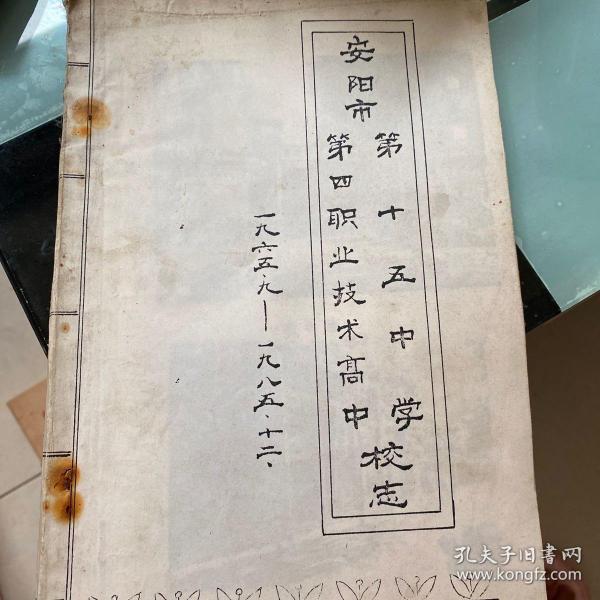 安阳市
第十五中学
第四职业技术高中
校志
一九六五.九—一九八五.十二.
孔夫子旧书网
www.kongfz.com